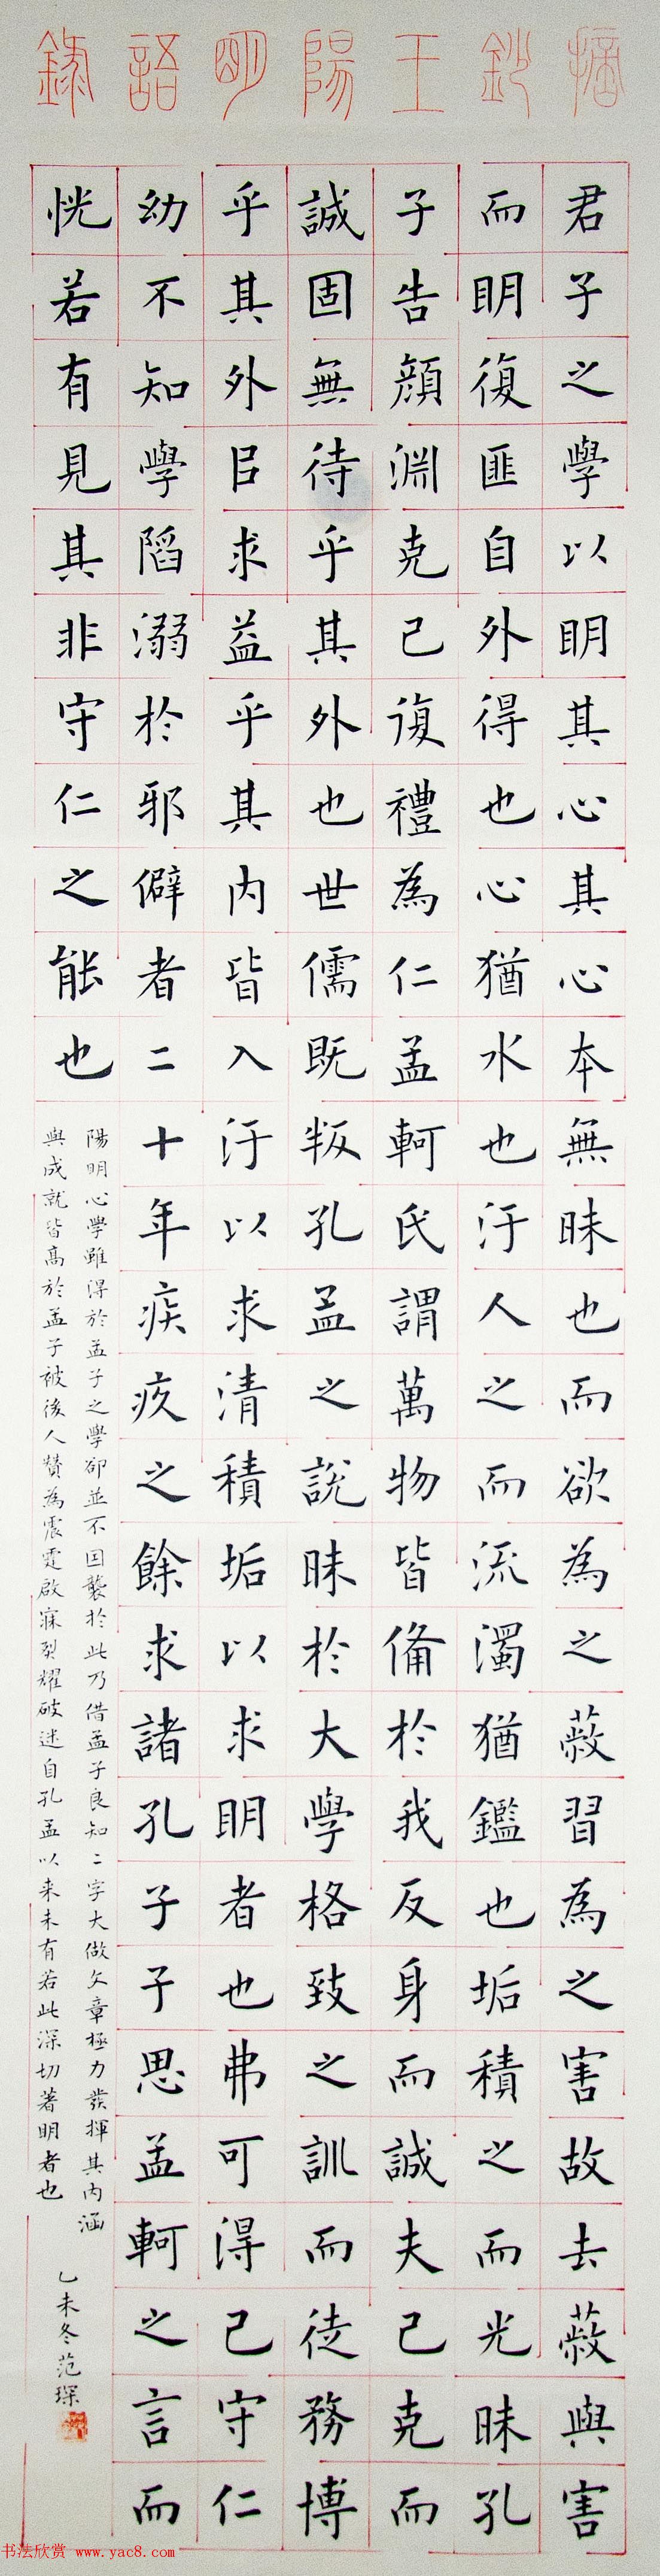 摘鈔王陽明語錄
君子之學以明其心其心本無昧也而欲為之蔽習為之害故去蔽與害
而明復匪自外得也心猶水也汙人之而流濁猶鑑也垢積之而光昧孔
子告顏淵克己復禮為仁孟軻氏謂萬物皆備於我反身而誠夫己克而
誠固無待乎其外也世儒既叛孔孟之說昧於大學格致之訓而徒務博
乎其外㠯求益乎其內皆入汙以求清積垢以求明者也弗可得已守仁
幼不知學陷溺於邪僻者二十年疾疚之餘求諸孔子子思孟軻之言而
恍若有見其非守仁之能也
陽明心學雖得於孟子之學卻並不因襲於此乃借孟子良知二字大做文章極力發揮其內涵
與成就皆高於孟子被後人贊為震霆啟寐烈耀破迷自孔孟以来未有若此深切著明者也
乙未冬范琛
书法欣赏 www.yac8.com